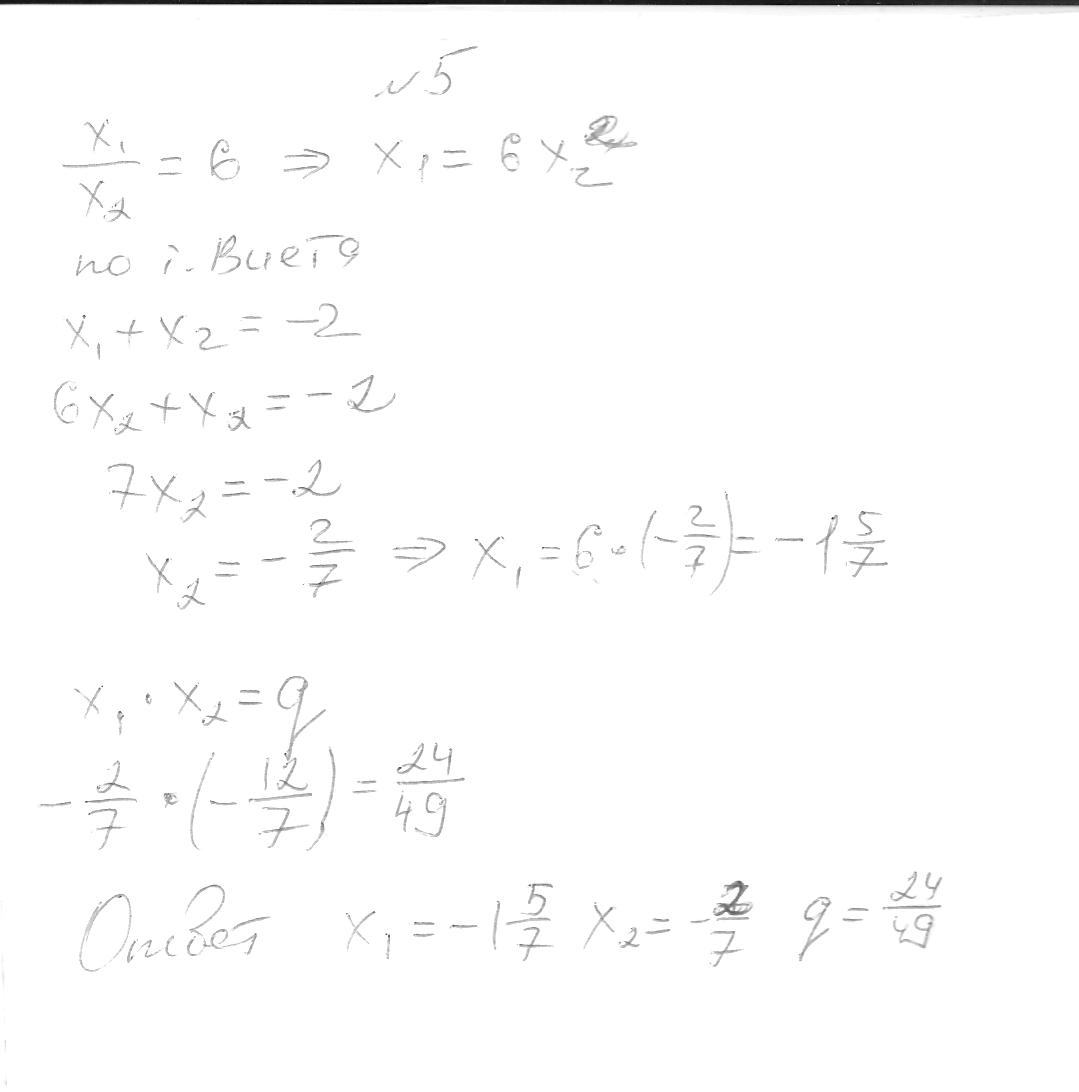 №5
x₁/x₂ = 6 ⇒ x₁ = 6x₂
по т. Виета
x₁ + x₂ = -2
6x₂ + x₂ = -2
7x₂ = -2
x₂ = -2/7 ⇒ x₁ = 6·(-2/7) = -1 5/7
x₁ · x₂ = q
-2/7 · (-12/7) = 24/49
Ответ x₁ = -1 5/7 x₂ = -2/7 q = 24/49